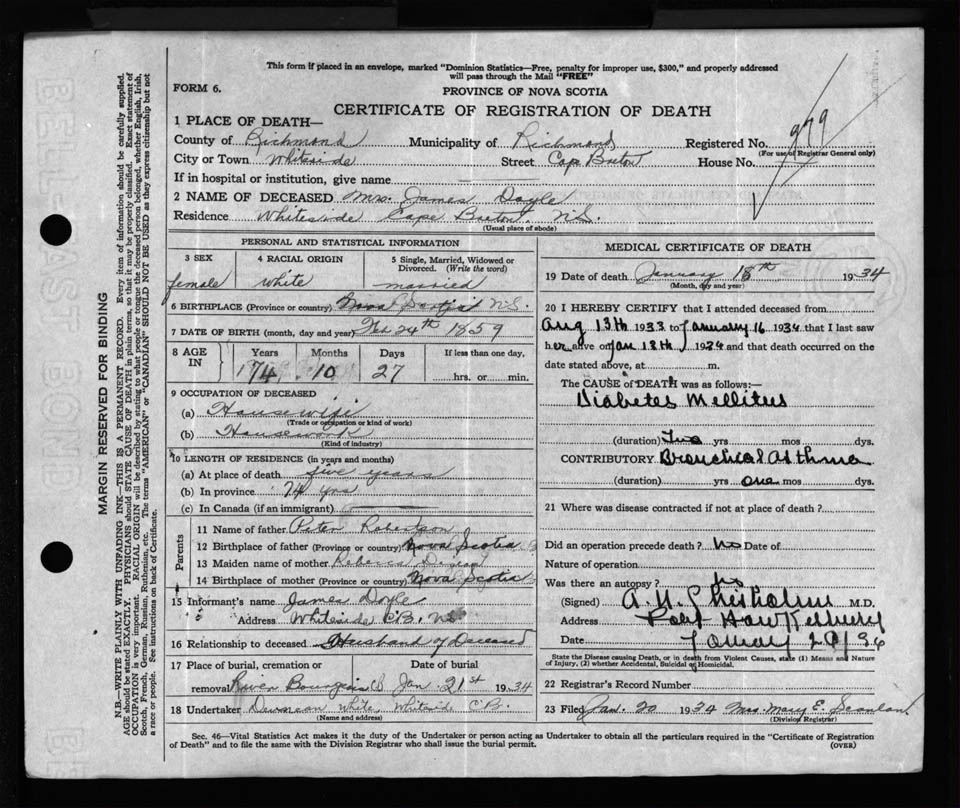 This form if placed in an envelope, marked "Dominion Statistics—Free, penalty for improper use, $300," and properly addressed
will pass through the Mail "FREE"
FORM 6.
PROVINCE OF NOVA SCOTIA
CERTIFICATE OF REGISTRATION OF DEATH
1 PLACE OF DEATH—
County of Richmond Municipality of Richmond Registered No. 979
(For use of Registrar General only)
City or Town Whiteside Street Cape Breton House No.
If in hospital or institution, give name
2 NAME OF DECEASED Mrs. James Doyle
Residence Whiteside Cape Breton, N.S.
(Usual place of abode)
PERSONAL AND STATISTICAL INFORMATION
3 SEX 4 RACIAL ORIGIN 5 Single, Married, Widowed or
Divorced. (Write the word)
female white married
6 BIRTHPLACE (Province or country) Nova Scotia N.S.
7 DATE OF BIRTH (month, day and year) Feb 24th 1859
8 AGE IN Years Months Days If less than one day,
74 10 27 hrs. or min.
9 OCCUPATION OF DECEASED
(a) Housewife
(Trade or occupation or kind of work)
(b) Housework
(Kind of industry)
10 LENGTH OF RESIDENCE (in years and months)
(a) At place of death five years
(b) In province 74 yrs
(c) In Canada (if an immigrant)
Parents
11 Name of father Peter Robertson
12 Birthplace of father (Province or country) Nova Scotia
13 Maiden name of mother Rebecca
14 Birthplace of mother (Province or country) Nova Scotia
15 Informant's name James Doyle
Address Whiteside C.B. N.S.
16 Relationship to deceased Husband of Deceased
17 Place of burial, cremation or Date of burial
removal River Bourgeois CB Jan. 21st 1934
18 Undertaker Duncan White, Whiteside C.B.
(Name and address)
MEDICAL CERTIFICATE OF DEATH
19 Date of death January 18th 1934
(Month, day and year)
20 I HEREBY CERTIFY that I attended deceased from
Aug 13th 1933 to January 16 1934 that I last saw
her alive on Jan 13th 1934 and that death occurred on the
date stated above, at m.
The CAUSE of DEATH was as follows:—
Diabetes Mellitus
(duration) Two yrs mos dys.
CONTRIBUTORY Bronchial Asthma
(duration) yrs one mos dys.
21 Where was disease contracted if not at place of death?
Did an operation precede death? No Date of
Nature of operation
Was there an autopsy? No
(Signed) Chisholm M.D.
Address Port Hawkesbury
Date
State the Disease causing Death, or in death from Violent Causes, state (1) Means and Nature
of Injury, (2) whether Accidental, Suicidal or Homicidal.
22 Registrar's Record Number
23 Filed Jan. 20 1934 Mrs. Mary E. Scanlan
(Division Registrar)
Sec. 46—Vital Statistics Act makes it the duty of the Undertaker or person acting as Undertaker to obtain all the particulars required in the "Certificate of Registration
of Death" and to file the same with the Division Registrar who shall issue the burial permit.
(OVER)
MARGIN RESERVED FOR BINDING
N.B.—WRITE PLAINLY WITH UNFADING INK—THIS IS A PERMANENT RECORD. Every item of information should be carefully supplied.
AGE should be stated EXACTLY. PHYSICIANS should STATE CAUSE OF DEATH in plain terms, so that it may be properly classified. Exact statement of
OCCUPATION is very important. RACIAL ORIGIN will be described by stating to what people or tongue the deceased person belonged, whether English, Irish,
Scotch, French, German, Russian, Ruthenian, etc. The terms "AMERICAN" or "CANADIAN" SHOULD NOT BE USED as they express citizenship but not
a race or people. See instructions on back of Certificate.